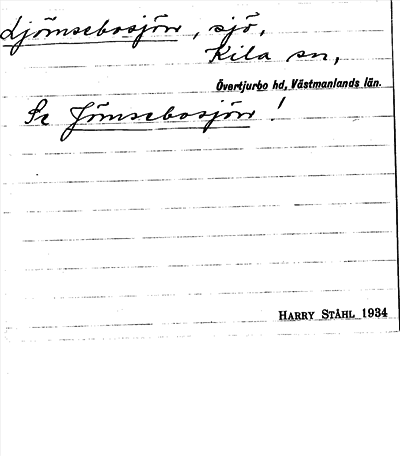 Ljömsebosjön, sjö,
Kila sn,
Övertjurbo hd, Västmanlands län.
Se Jömsebosjön!
HARRY STÅHL 1934